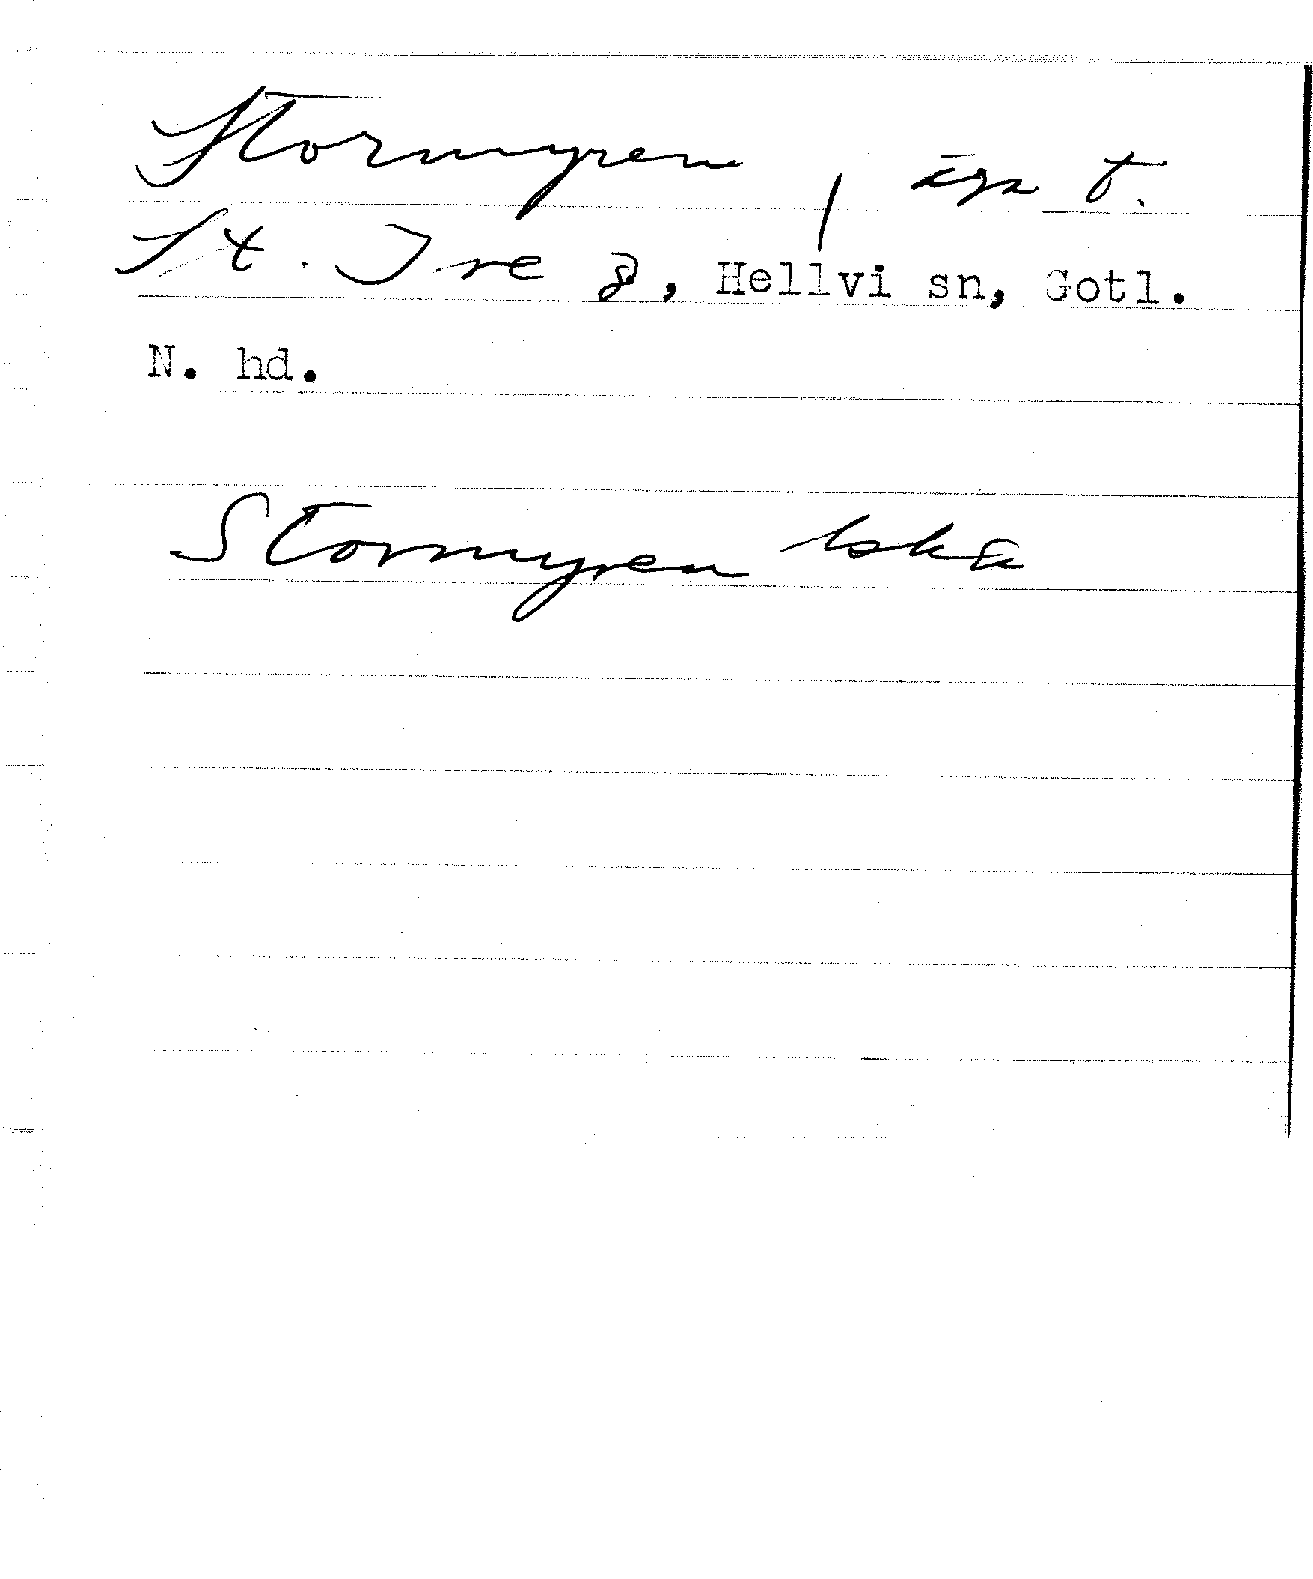 Stormyren, äga t.
St. Ire g, Hellvi sn, Gotl.
N. hd.
Stormyren lskä